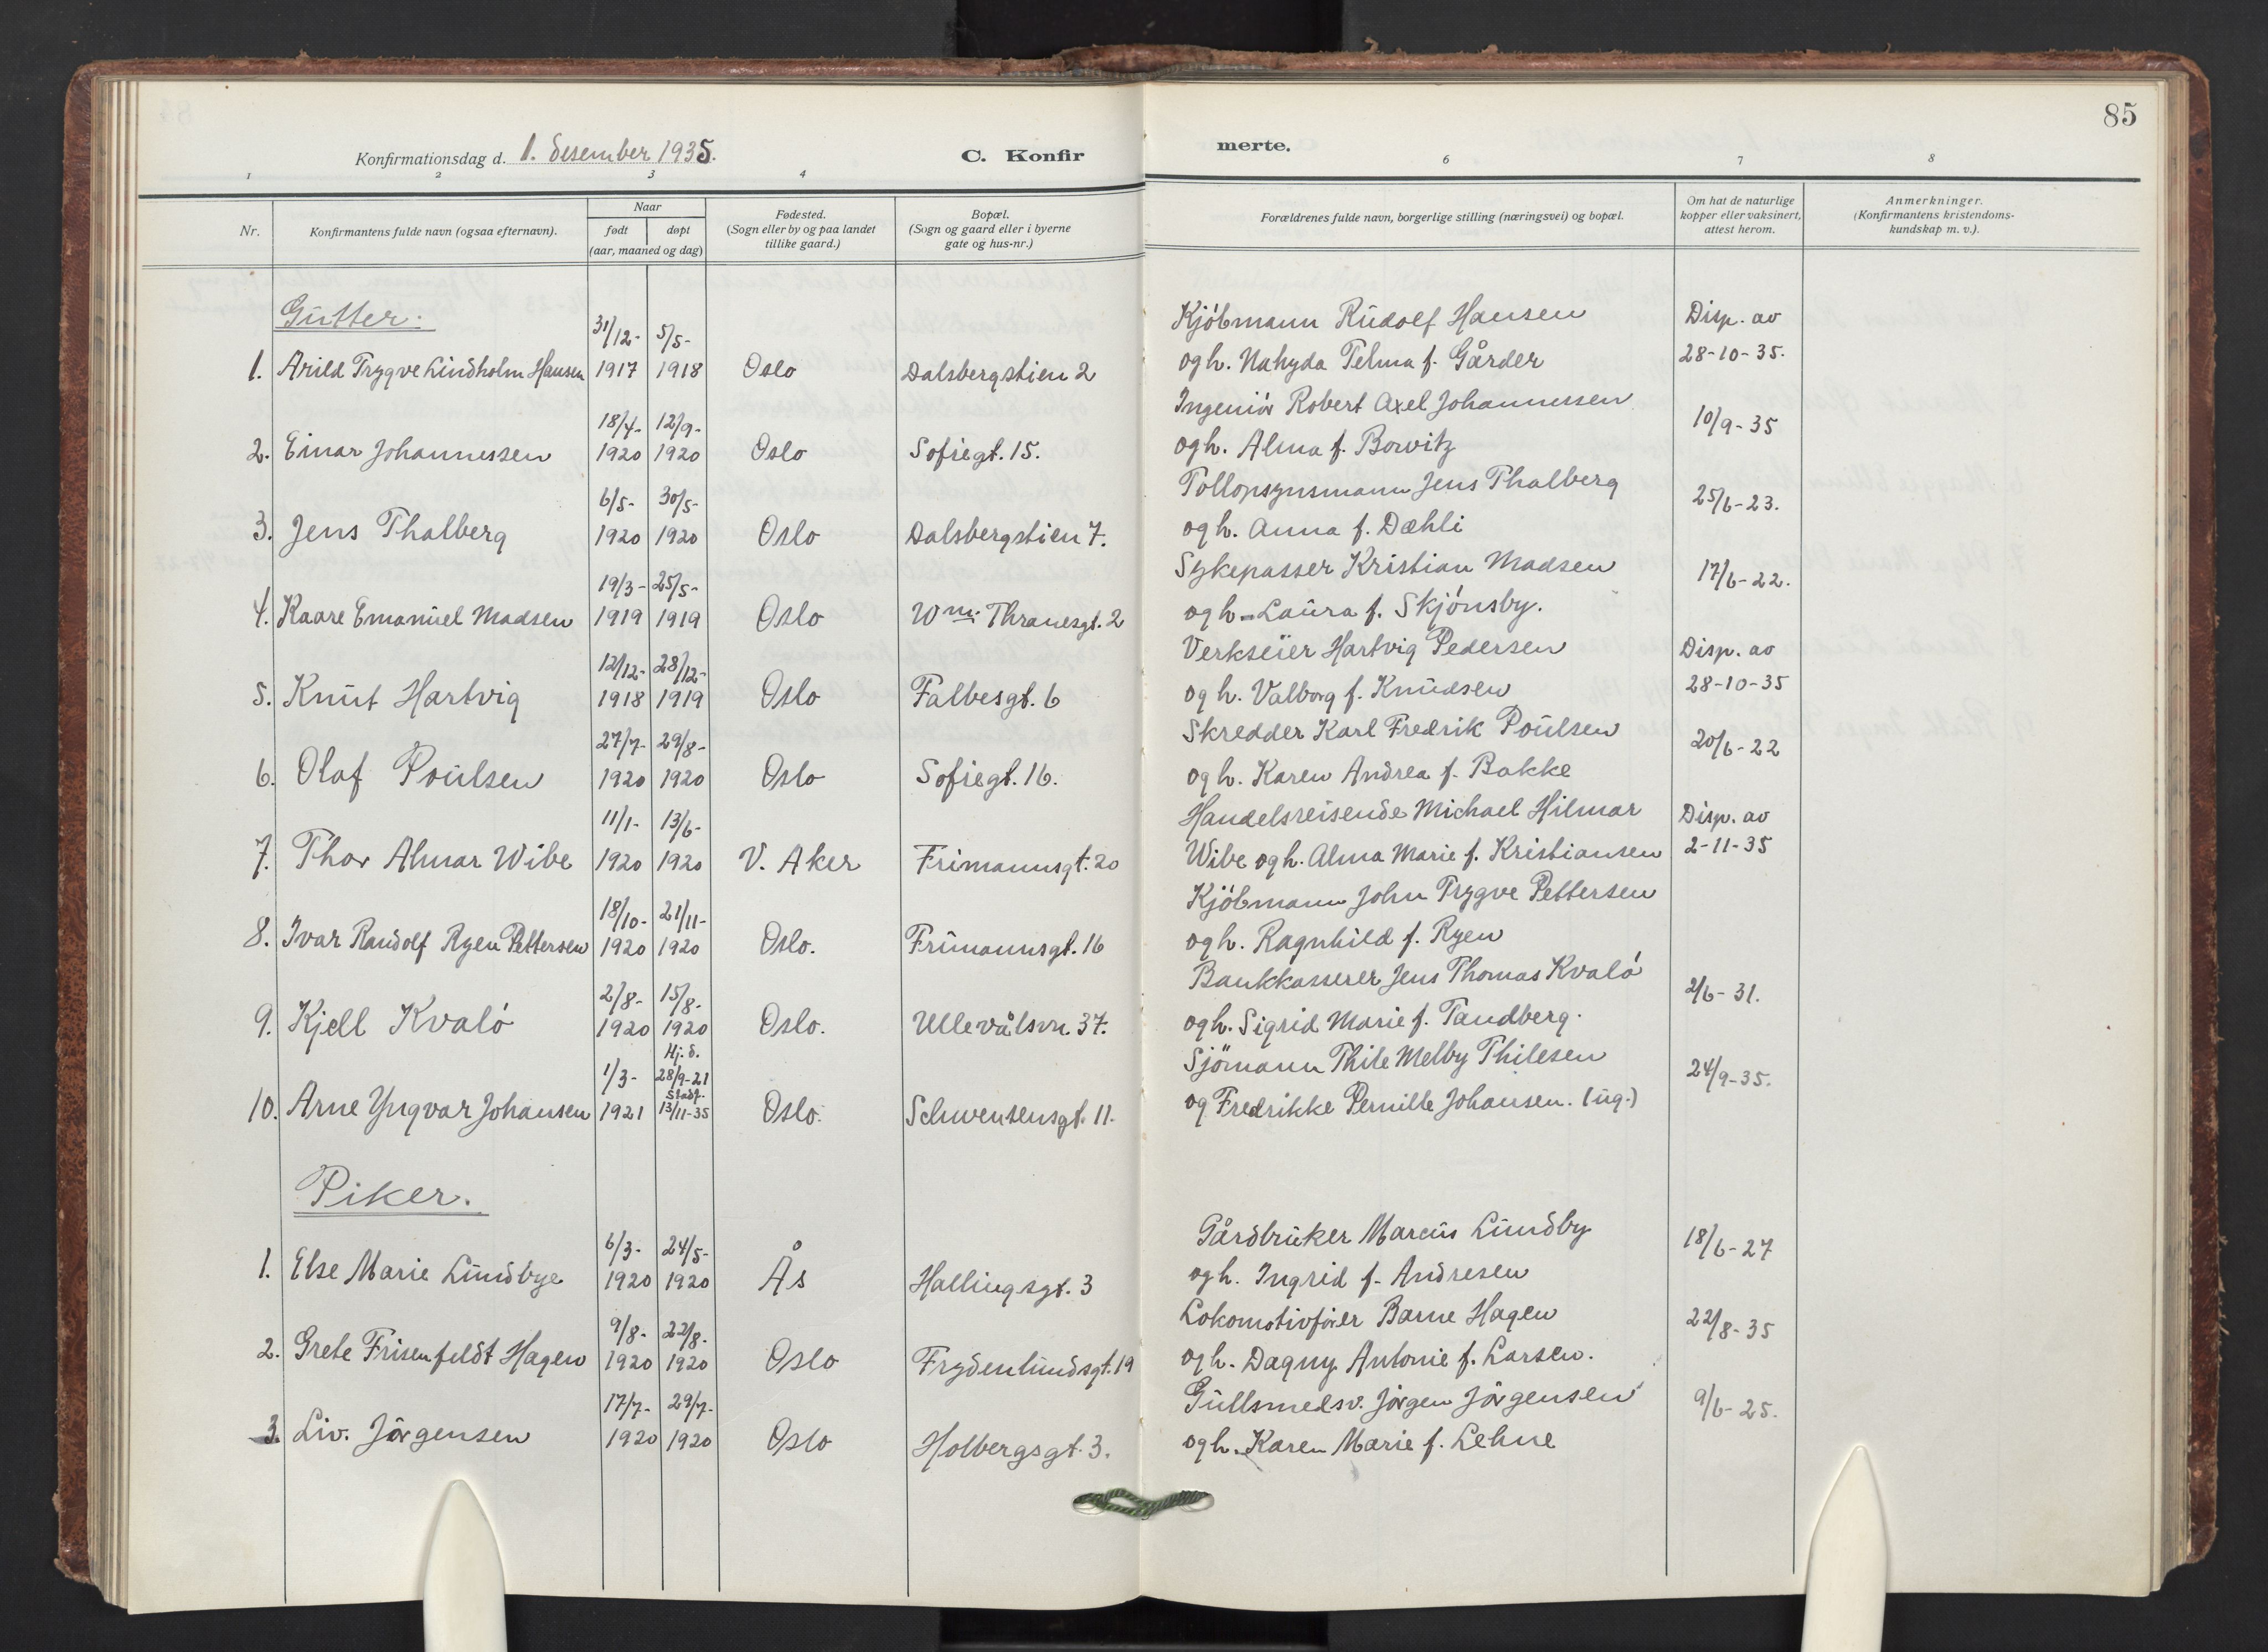 85
Konfirmationsdag d. 1. desember 1935.
C. Konfirmerte.
1 2 3 4 6 7 8
Nr.
Konfirmantens fulde navn (ogsaa efternavn).
Naar
født døpt
(aar, maaned og dag)
Fødested.
(Sogn eller by og paa landet
tillike gaard.)
Bopæl.
(Sogn og gaard eller i byerne
gate og hus-nr.)
Forældrenes fulde navn, borgerlige stilling (næringsvei) og bopæl.
Om hat de naturlige
kopper eller vaksinert,
attest herom.
Anmerkninger.
(Konfirmantens kristendoms-
kundskap m. v.).
Gutter.
31/12- 5/5- Kjöbmann Rudolf Hansen Disp. av
1. Arild Trygve Lindholm Hansen 1917 1918 Oslo Dalsbergstien 2 og h. Nahyda Telma f. Gårder 28-10-35.
18/4- 12/9- Ingeniör Robert Axel Johannessen 10/9-35
2. Einar Johannessen 1920 1920 Oslo Sofiegt. 15. og h. Alma f. Borvitz
6/5- 30/5- Tollopsynsmann Jens Thalberg 25/6-23.
3. Jens Thalberg 1920 1920 Oslo Dalsbergstien 7. og h. Anna f. Dæhli
19/3- 25/5- Sykepasser Kristian Madsen 17/6-22.
4. Kaare Emanuel Madsen 1919 1919 Oslo Wm. Thranesgt. 2 og h. Laura f. Skjönsby.
12/12- 28/12- Verkseier Hartvig Pedersen Disp. av
5. Knut Hartvig 1918 1919 Oslo Falbesgt. 6 og h. Valborg f. Knudsen 28-10-35
27/7- 29/8- Skredder Karl Fredrik Poulsen 20/6-22
6. Olaf Poulsen 1920 1920 Oslo Sofiegt. 16. og h. Karen Andrea f. Bakke
11/1- 13/6- Handelsreisende Michael Hilmar Disp. av
7. Thor Almar Wibe 1920 1920 V. Aker Frimannsgt. 20 Wibe og h. Alma Marie f. Kristiansen 2-11-35
18/10- 21/11- Kjöbmann John Trygve Pettersen
8. Ivar Randolf Ryen Pettersen 1920 1920 Oslo. Frimannsgt. 16 og h. Ragnhild f. Ryen
2/8- 15/8- Bankkasserer Jens Thomas Kvalö 2/6-31.
9. Kjell Kvalö 1920 1920 Oslo. Ullevålsvn. 37. og h. Sigrid Marie f. Tandberg.
Hj. d.
1/3- 28/9-21 Sjömann Thile Melby Thilesen 24/9-35.
Stadf.
10. Arne Yngvar Johansen 1921 13/11-35 Oslo. Schwensensgt. 11. og Fredrikke Pernille Johansen. (ug.)
Piker.
6/3- 24/5- Gårdbruker Marcus Lundby 18/6-27
1. Else Marie Lundbye 1920 1920 Ås Hallingsgt. 3 og h. Ingrid f. Andresen
9/8- 22/8- Lokomotivförer Barne Hagen 22/8-35
2. Grete Frisenfeldt Hagen 1920 1920 Oslo Frydenlundsgt. 19 og h. Dagny Antonie f. Larsen.
17/7- 29/7- Gullsmedsv. Jörgen Jörgensen 9/6-25.
3. Liv. Jörgensen 1920 1920 Oslo Holbergsgt. 3. og h. Karen Marie f. Lehne